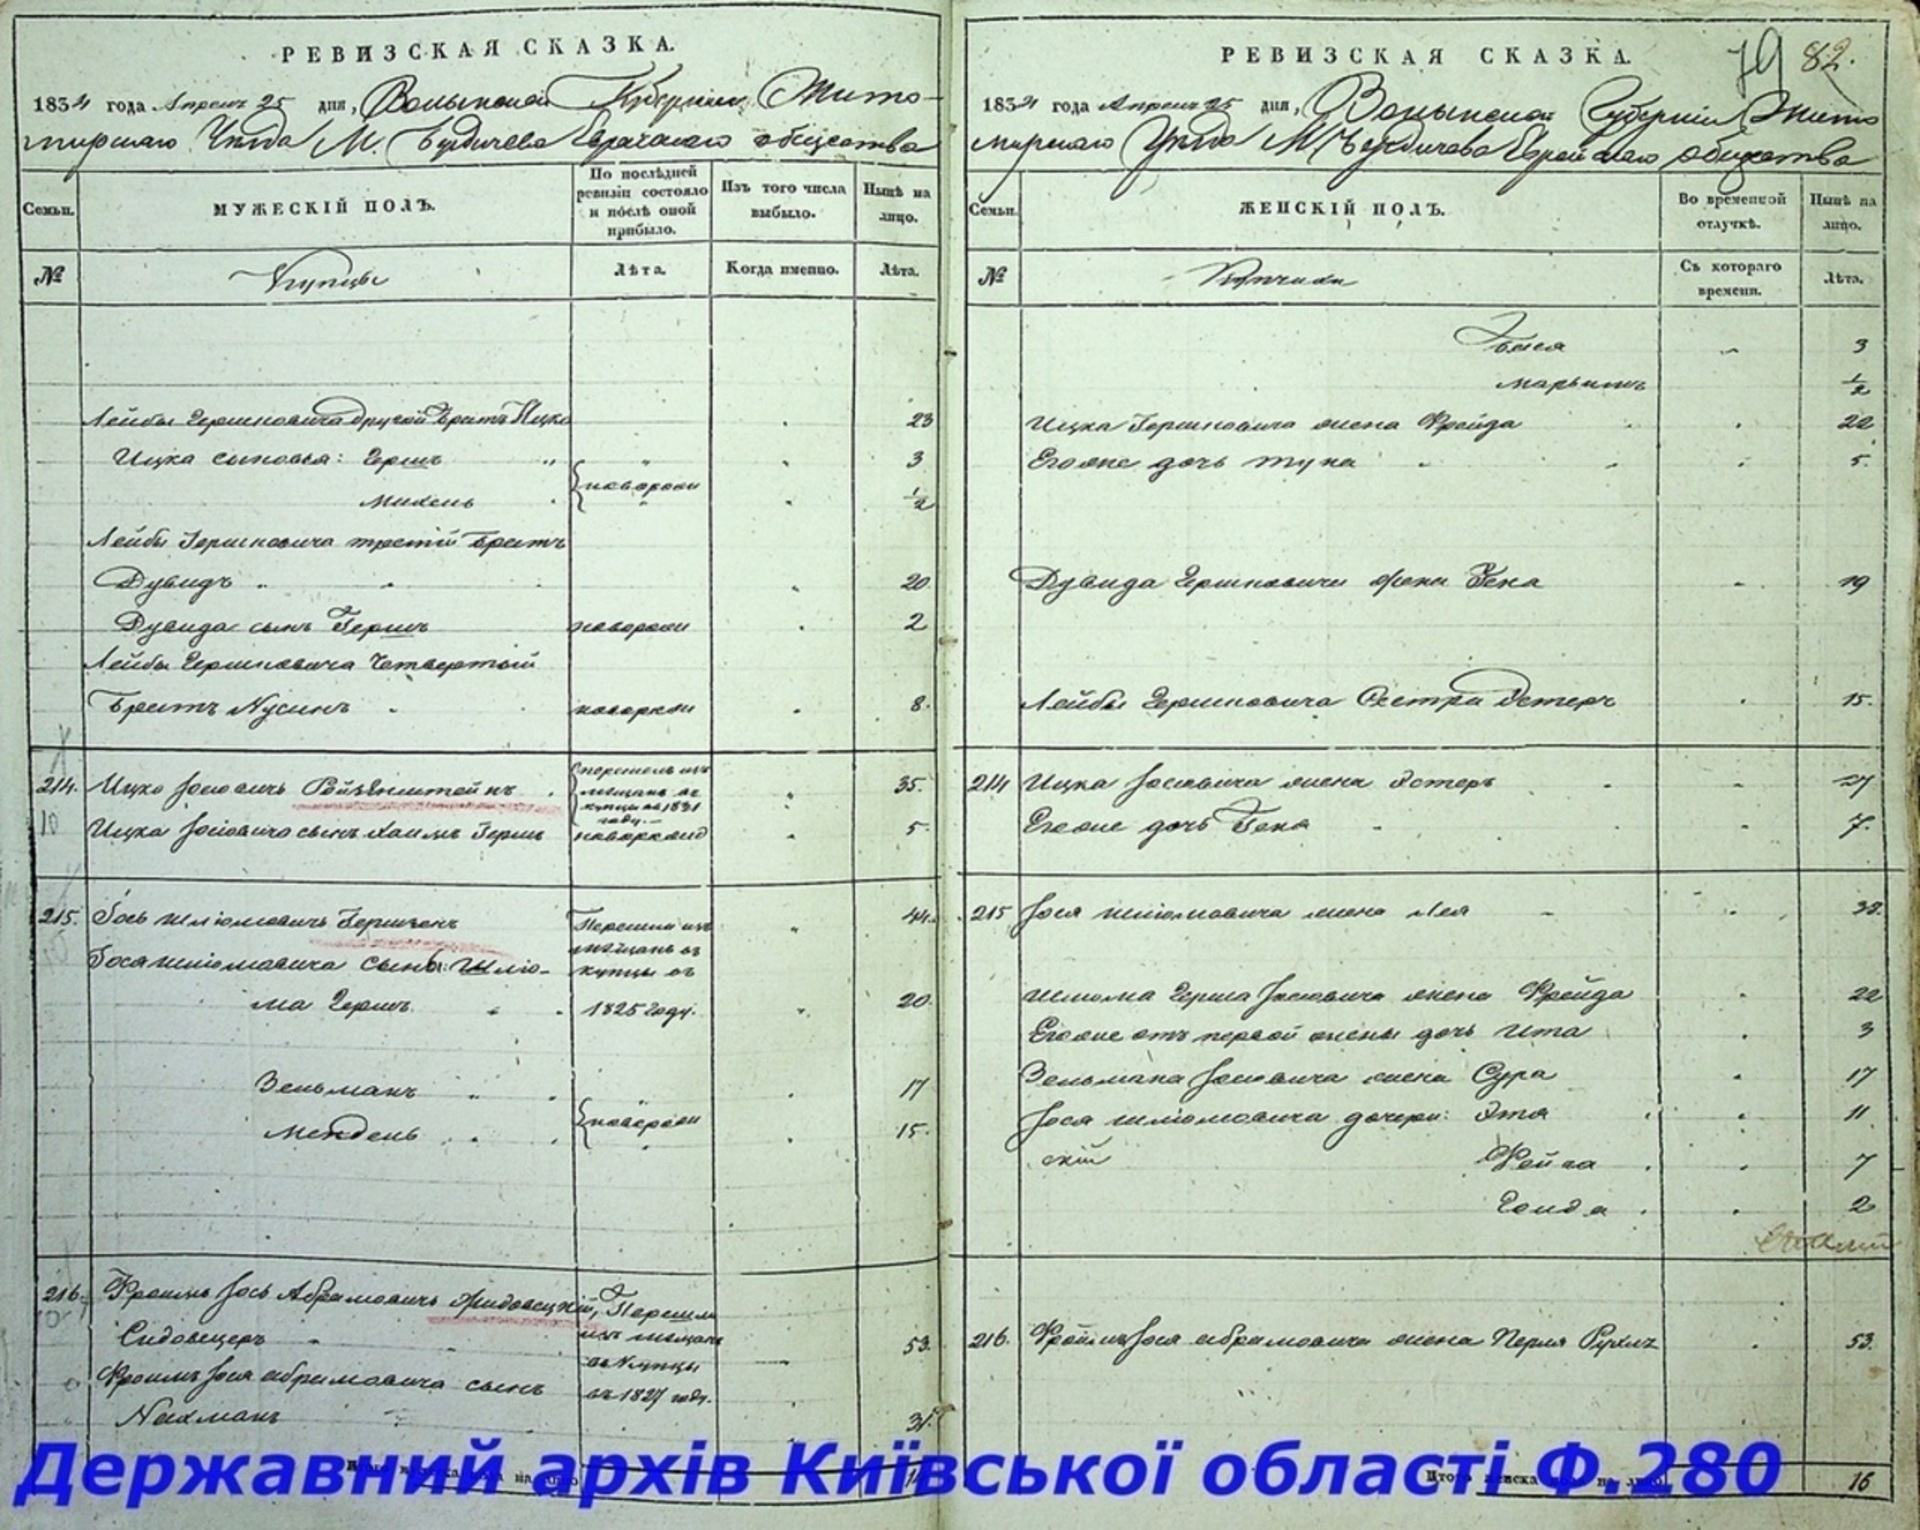 РЕВИЗСКАЯ СКАЗКА.
1834 года Апреля 25 дня, Волынской Губернии Жито-
мирскаго Уезда М. Бердичева Еврейскаго общества
Семьи.
МУЖЕСКІЙ ПОЛЪ.
По послѣдней ревизіи состояло и послѣ оной прибыло.
Изъ того числа выбыло.
Нынѣ на лицо.
№
Купцы
Лѣта.
Когда именно.
Лѣта.
Лейбы Гершковича другой братъ Ицко 23
Ицка сыновья: Гершъ " " 3
новорожи
Михель 1/2
Лейбы Гершковича третій братъ
Дувидъ 20
Дувида сынъ Гершъ новорожи 2
Лейбы Гершковича Четвертый
Братъ Нусинъ новорожи 8.
214. Ицко Іосіовичъ Ройзенштейнъ 35.
перешолъ изъ
мѣщанъ въ
купцы въ 1831
году.
Ицка Іосіовича сынъ Хаимъ Гершъ новорожд 5.
215. Іось Шліомовичъ Гершзенъ 44.
Перешли изъ
мѣщанъ въ
купцы въ
1825 году.
Іося Шліомовича сыновья: Шліо-
ма Гершъ 20.
Зельманъ 17
новорожи
Мендель 15.
216. Фроимъ Іось Абрамовичъ Жидовецкій,
Сидовецеръ 53.
Перешли
изъ мещанъ
въ Купцы
въ 1827 году.
Фроимъ Іося Абрамовича сынъ
Нахманъ
РЕВИЗСКАЯ СКАЗКА.
79 82.
1834 года Апреля 25 дня, Волынской Губерніи Жито
мирскаго Уезда М Бердичева Еврейскаго общества
Семьи.
ЖЕНСКІЙ ПОЛЪ.
Во временной отлучкѣ.
Нынѣ на лицо.
№
Купчихи
Съ котораго времени.
Лѣта.
Бася 3
Марьимъ 1/2
Ицка Гершковича жена Фрейда 22
Егоже дочь 5.
Дувида Гершковича жена 19
Лейбы Гершковича Сестра Эстеръ 15.
214 Ицка Іосіовича жена Эстеръ 27
Егоже дочь 7.
215 Іося Шліомовича жена Лея
Шлиома Герша Іосіовича жена Фрейда 22
Егоже отъ первой жены дочь Ита 3
Зельмана Іосіовича жена Сура 17
Іося Шліомовича дочери: Этя 11
Фейга 7
Голда 2
216. Фроимъ Іося Абрамовича жена Перля Рухль 53.
Итого женска на лицо 16
Державний архів Київської області Ф.280